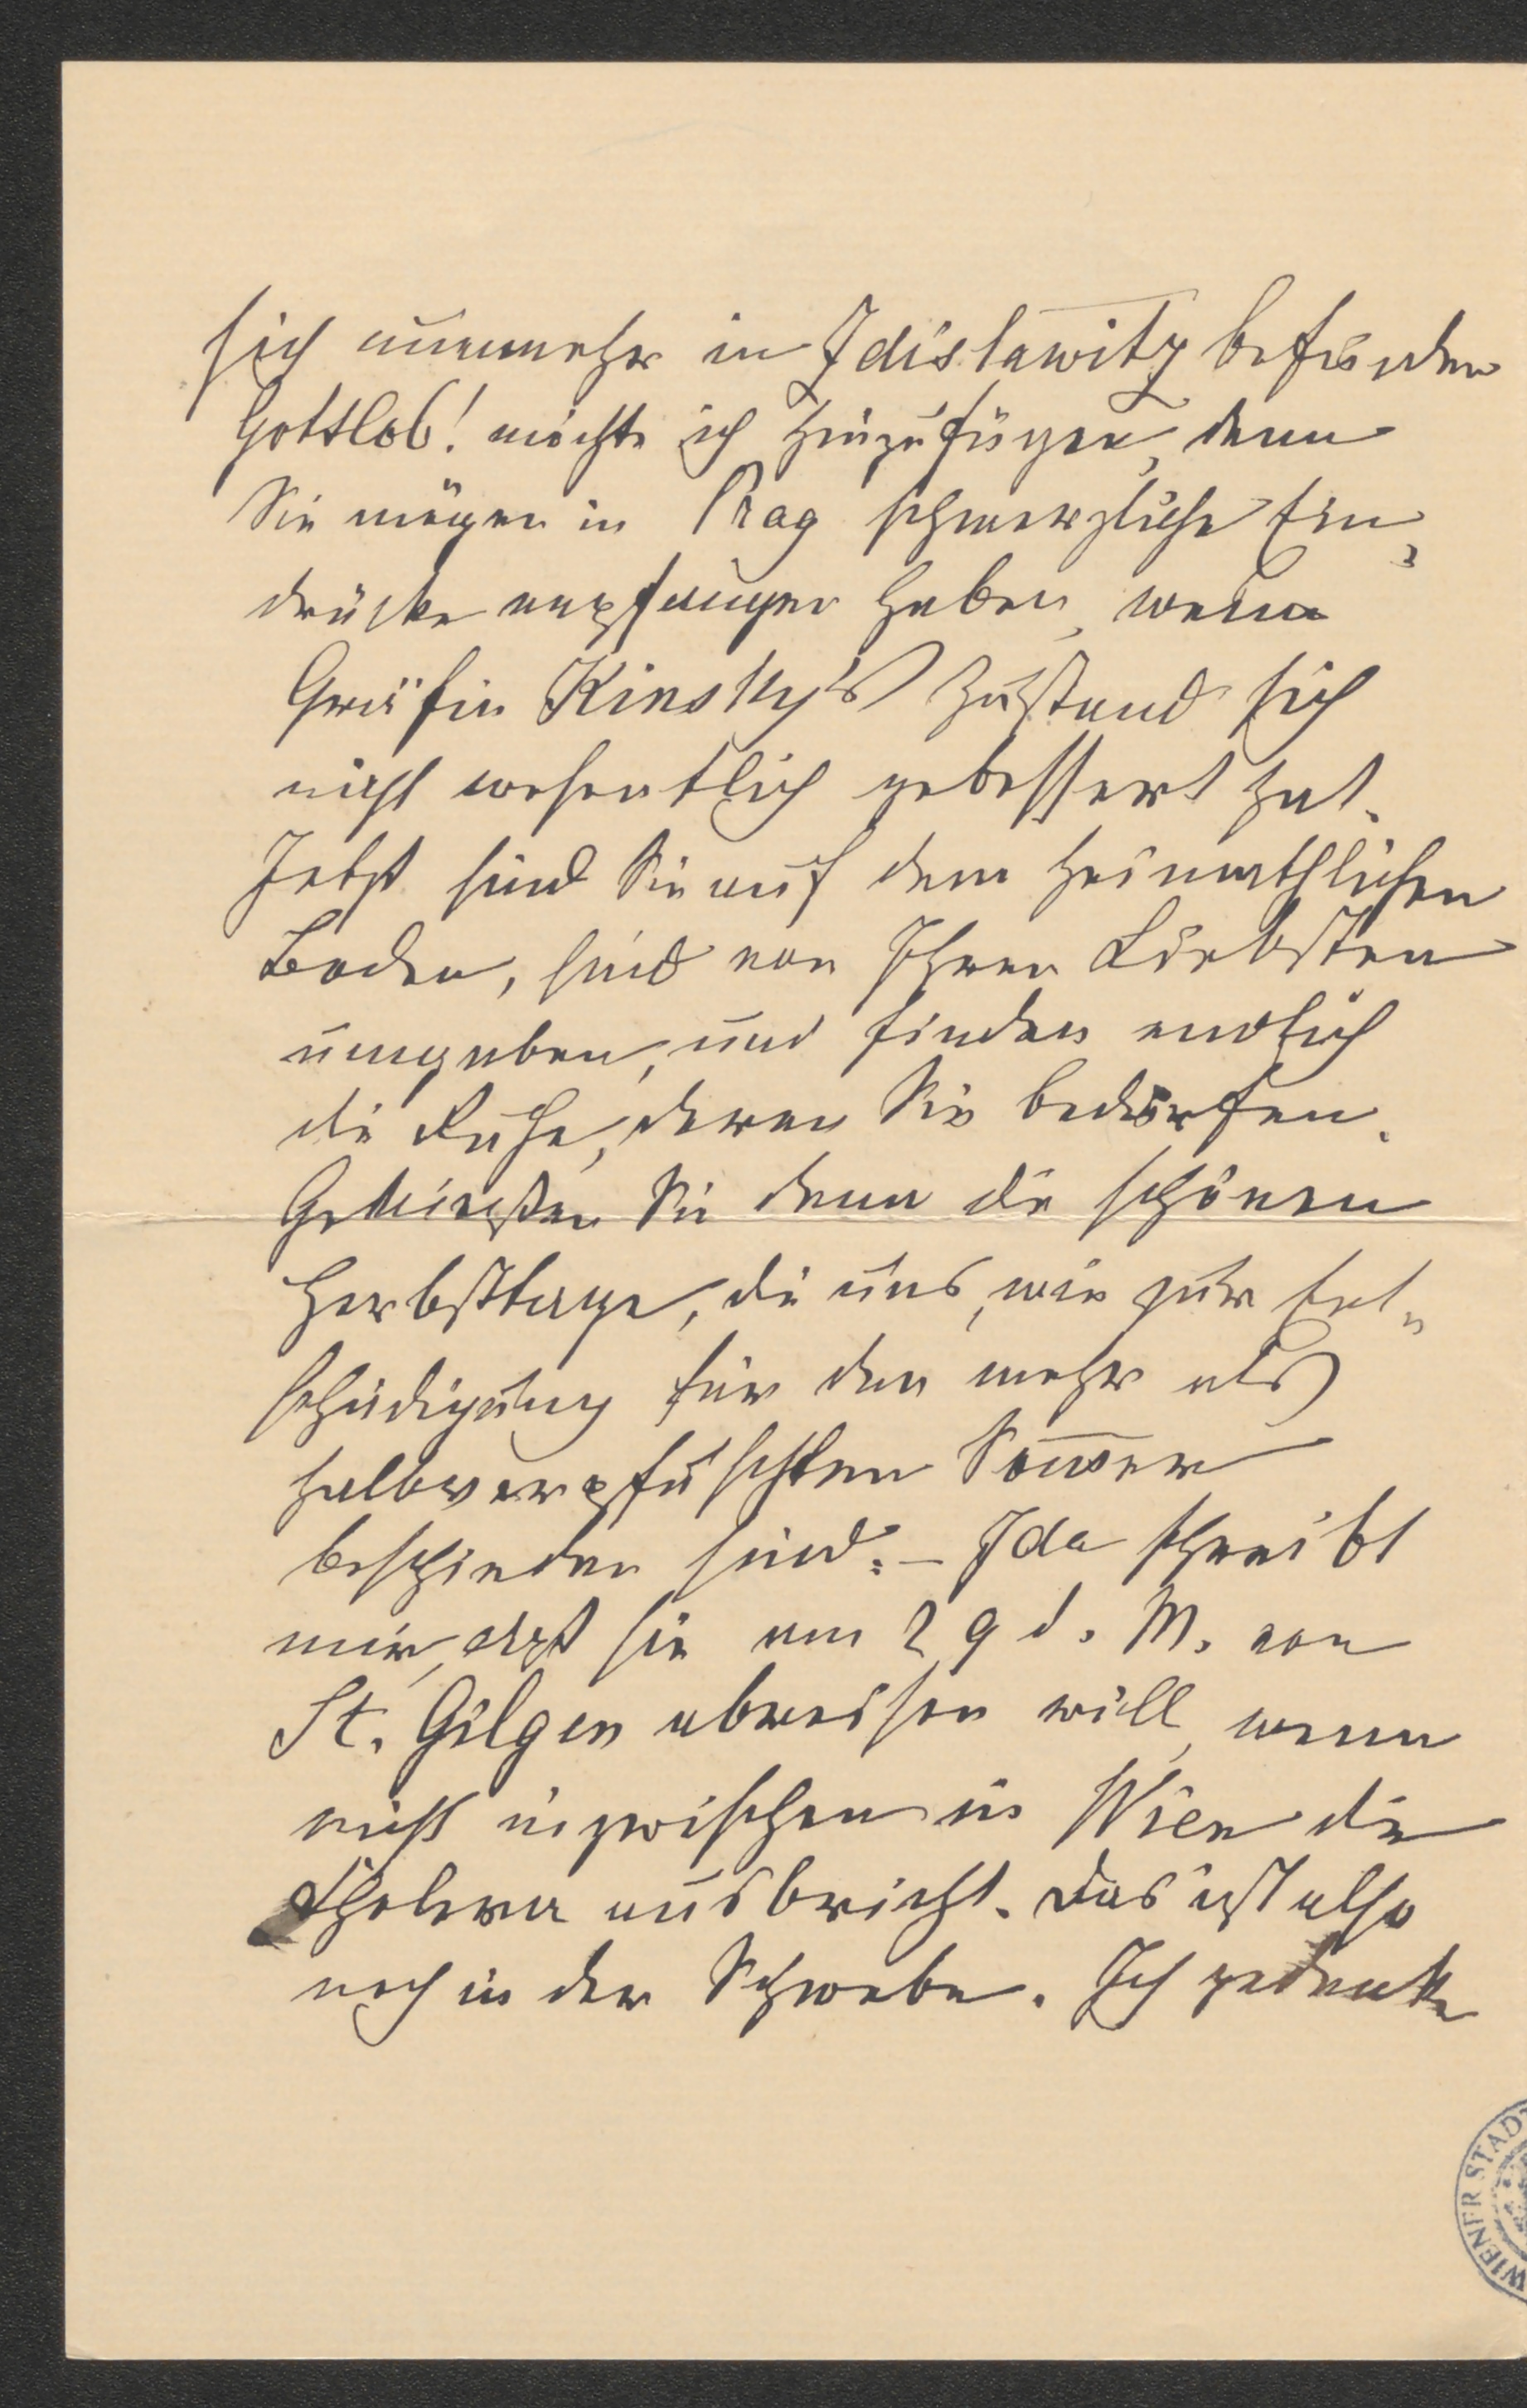 sich nunmehr in Zdislawitz befinden
Gottlob! möchte ich hinzufügen, denn
Sie mögen in Prag schmerzliche Ein¬
drücke empfangen haben, wenn
Gräfin Kinsky's Zustand sich
nicht wesentlich gebessert hat.
Jetzt sind Sie auf dem heimathlichen
Boden, sind von Ihren Liebsten
umgeben, und finden endlich
die Ruhe, deren Sie bedürfen.
Genießen Sie denn die schönen
Herbsttage, die uns, wie zur Ent¬
schädigung für den mehr als
halbverpfuschten Sommer
beschieden sind. – Ida schreibt
mir, daß sie am 29 d. M. von
St. Gilgen abreisen will, wenn
nicht inzwischen in Wien die
Cholera ausbricht. Das ist also
noch in der Schwebe. Ich gedenke
WIENER STADT